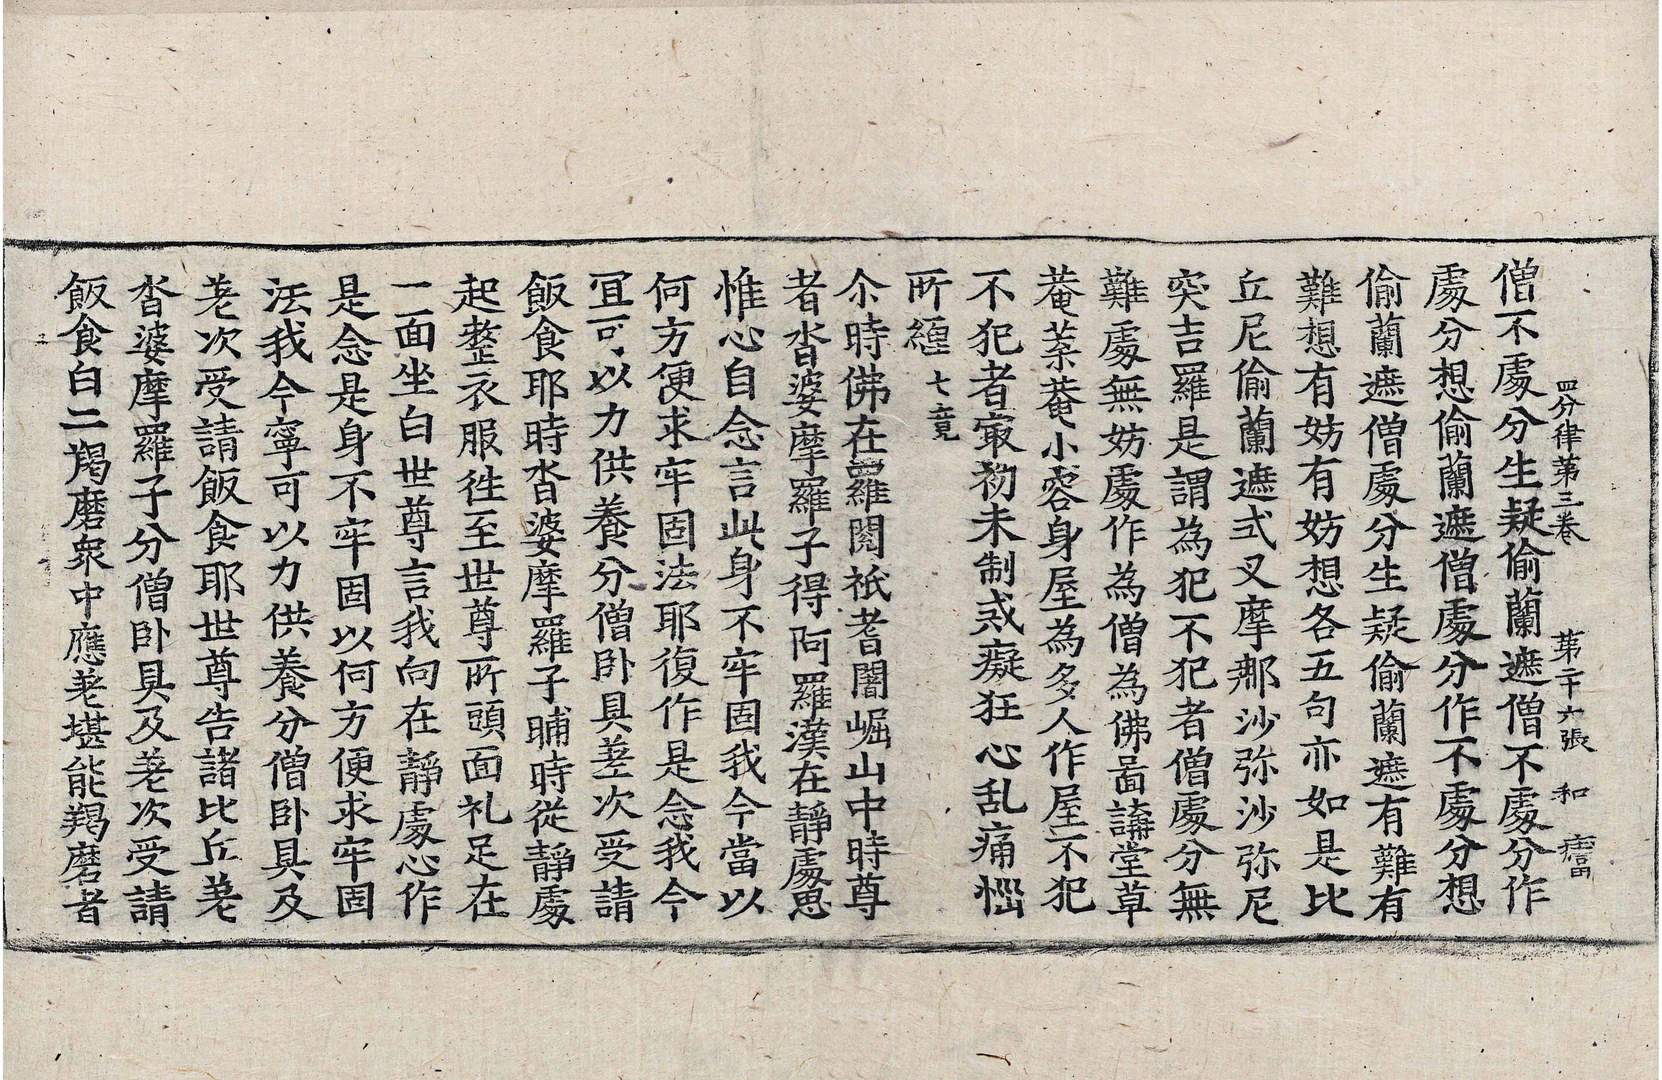 四分律第三卷 第二十六張 和
僧不處分生疑偷蘭遮僧不處分作
處分想偷蘭遮僧處分作不處分想
偷蘭遮僧處分生疑偷蘭遮有難有
難想有妨有妨想各五句亦如是比
丘尼偷蘭遮式叉摩那沙弥沙弥尼
突吉羅是謂為犯不犯者僧處分無
難處無妨處作為僧為佛啚講堂草
菴葉菴小容身屋為多人作屋不犯
不犯者㝡初未制戒癡狂心乱痛惱
所纏 七竟
尒時佛在羅閱祇耆闍崛山中時尊
者沓婆摩羅子得阿羅漢在靜處思
惟心自念言此身不牢固我今當以
何方便求牢固法耶復作是念我今
冝可以力供養分僧卧具差次受請
飯食耶時沓婆摩羅子晡時從靜處
起整衣服往至世尊所頭面礼足在
一面坐白世尊言我向在靜處心作
是念是身不牢固以何方便求牢固
法我今寧可以力供養分僧卧具及
差次受請飯食耶世尊告諸比丘差
沓婆摩羅子分僧卧具及差次受請
飯食白二羯磨衆中應差堪能羯磨者